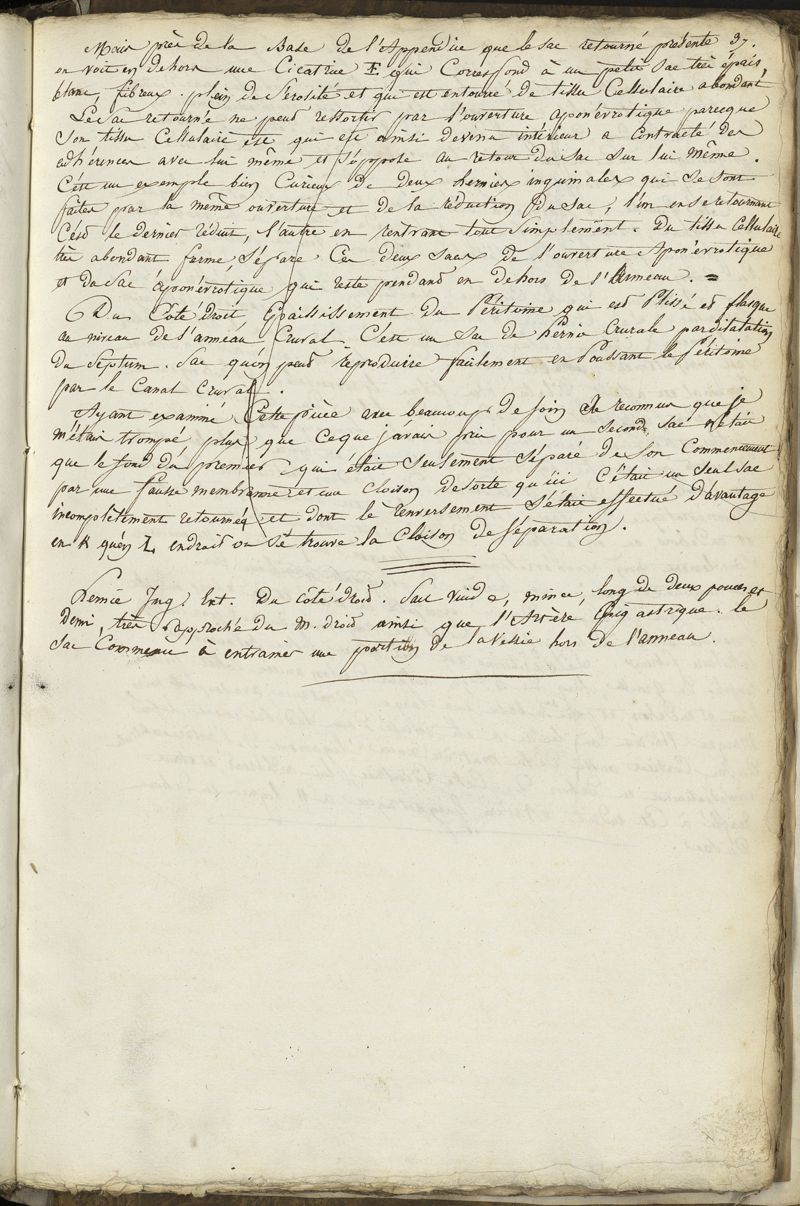 Mais près de la Base de l'Appendice que le sac retourné présente 37.
on voit en dehors une Cicatrice E qui Correspond à un petit sac très épais,
blanc, fibreux. plein de Sérosité et qui est entourré de tissu Cellulaire abondant
Le sac retourné ne peut ressortir par l'ouverture aponévrotique parceque
Son tissu Cellulaire est qui est ainsi devenu intérieur a contracté des
adhérences avec lui même et s'oppose au retour du sac sur lui même.
C'est un exemple bien Curieux de deux hernies inguinales qui se sont
faites par la même ouverture et de la réduction du sac, l'un en se retournant
C'est le dernier réduit, l'autre en rentrant tout simplement. Du tissu Cellulaire
très abondant ferme, Sépare Ces deux sacs de l'ouverture Aponévrotique
et du sac aponévrotique qui reste pendant en dehors de l'Anneau. =
Du Côté Droit, Epaississement du Péritoine qui est Plissé et flasque
au niveau de l'anneau Crural. C'est un sac de Hernie Crurale par dilatation
Du Septum. Sac qu'on peut reproduire facilement en Poussant le Péritoine
par le Canal Crural.
Ayant examiné Cette pièce avec beaucoup de soin Je reconnus que je
m'étais trompé plus que ce que j'avais pris pour un second sac n'était
que le fond du premier qui était seulement séparé de son Commencement
par une fausse membranne et une cloison desorte qu'ici C'était un seul sac
incomplètement retourné et dont le renversement s'était effectué d'avantage
en K qu'en L endroit où se trouve la Cloison de séparation.
Hernie Ing. Ext. Du côté droit. Sac vuide, mince, long de deux pouces et
Demi, très rapproché du M. droit ainsi que l'Artère Epigastrique. le
Sac Commence à entrainer une portion de la Vessie hors de l'anneau.